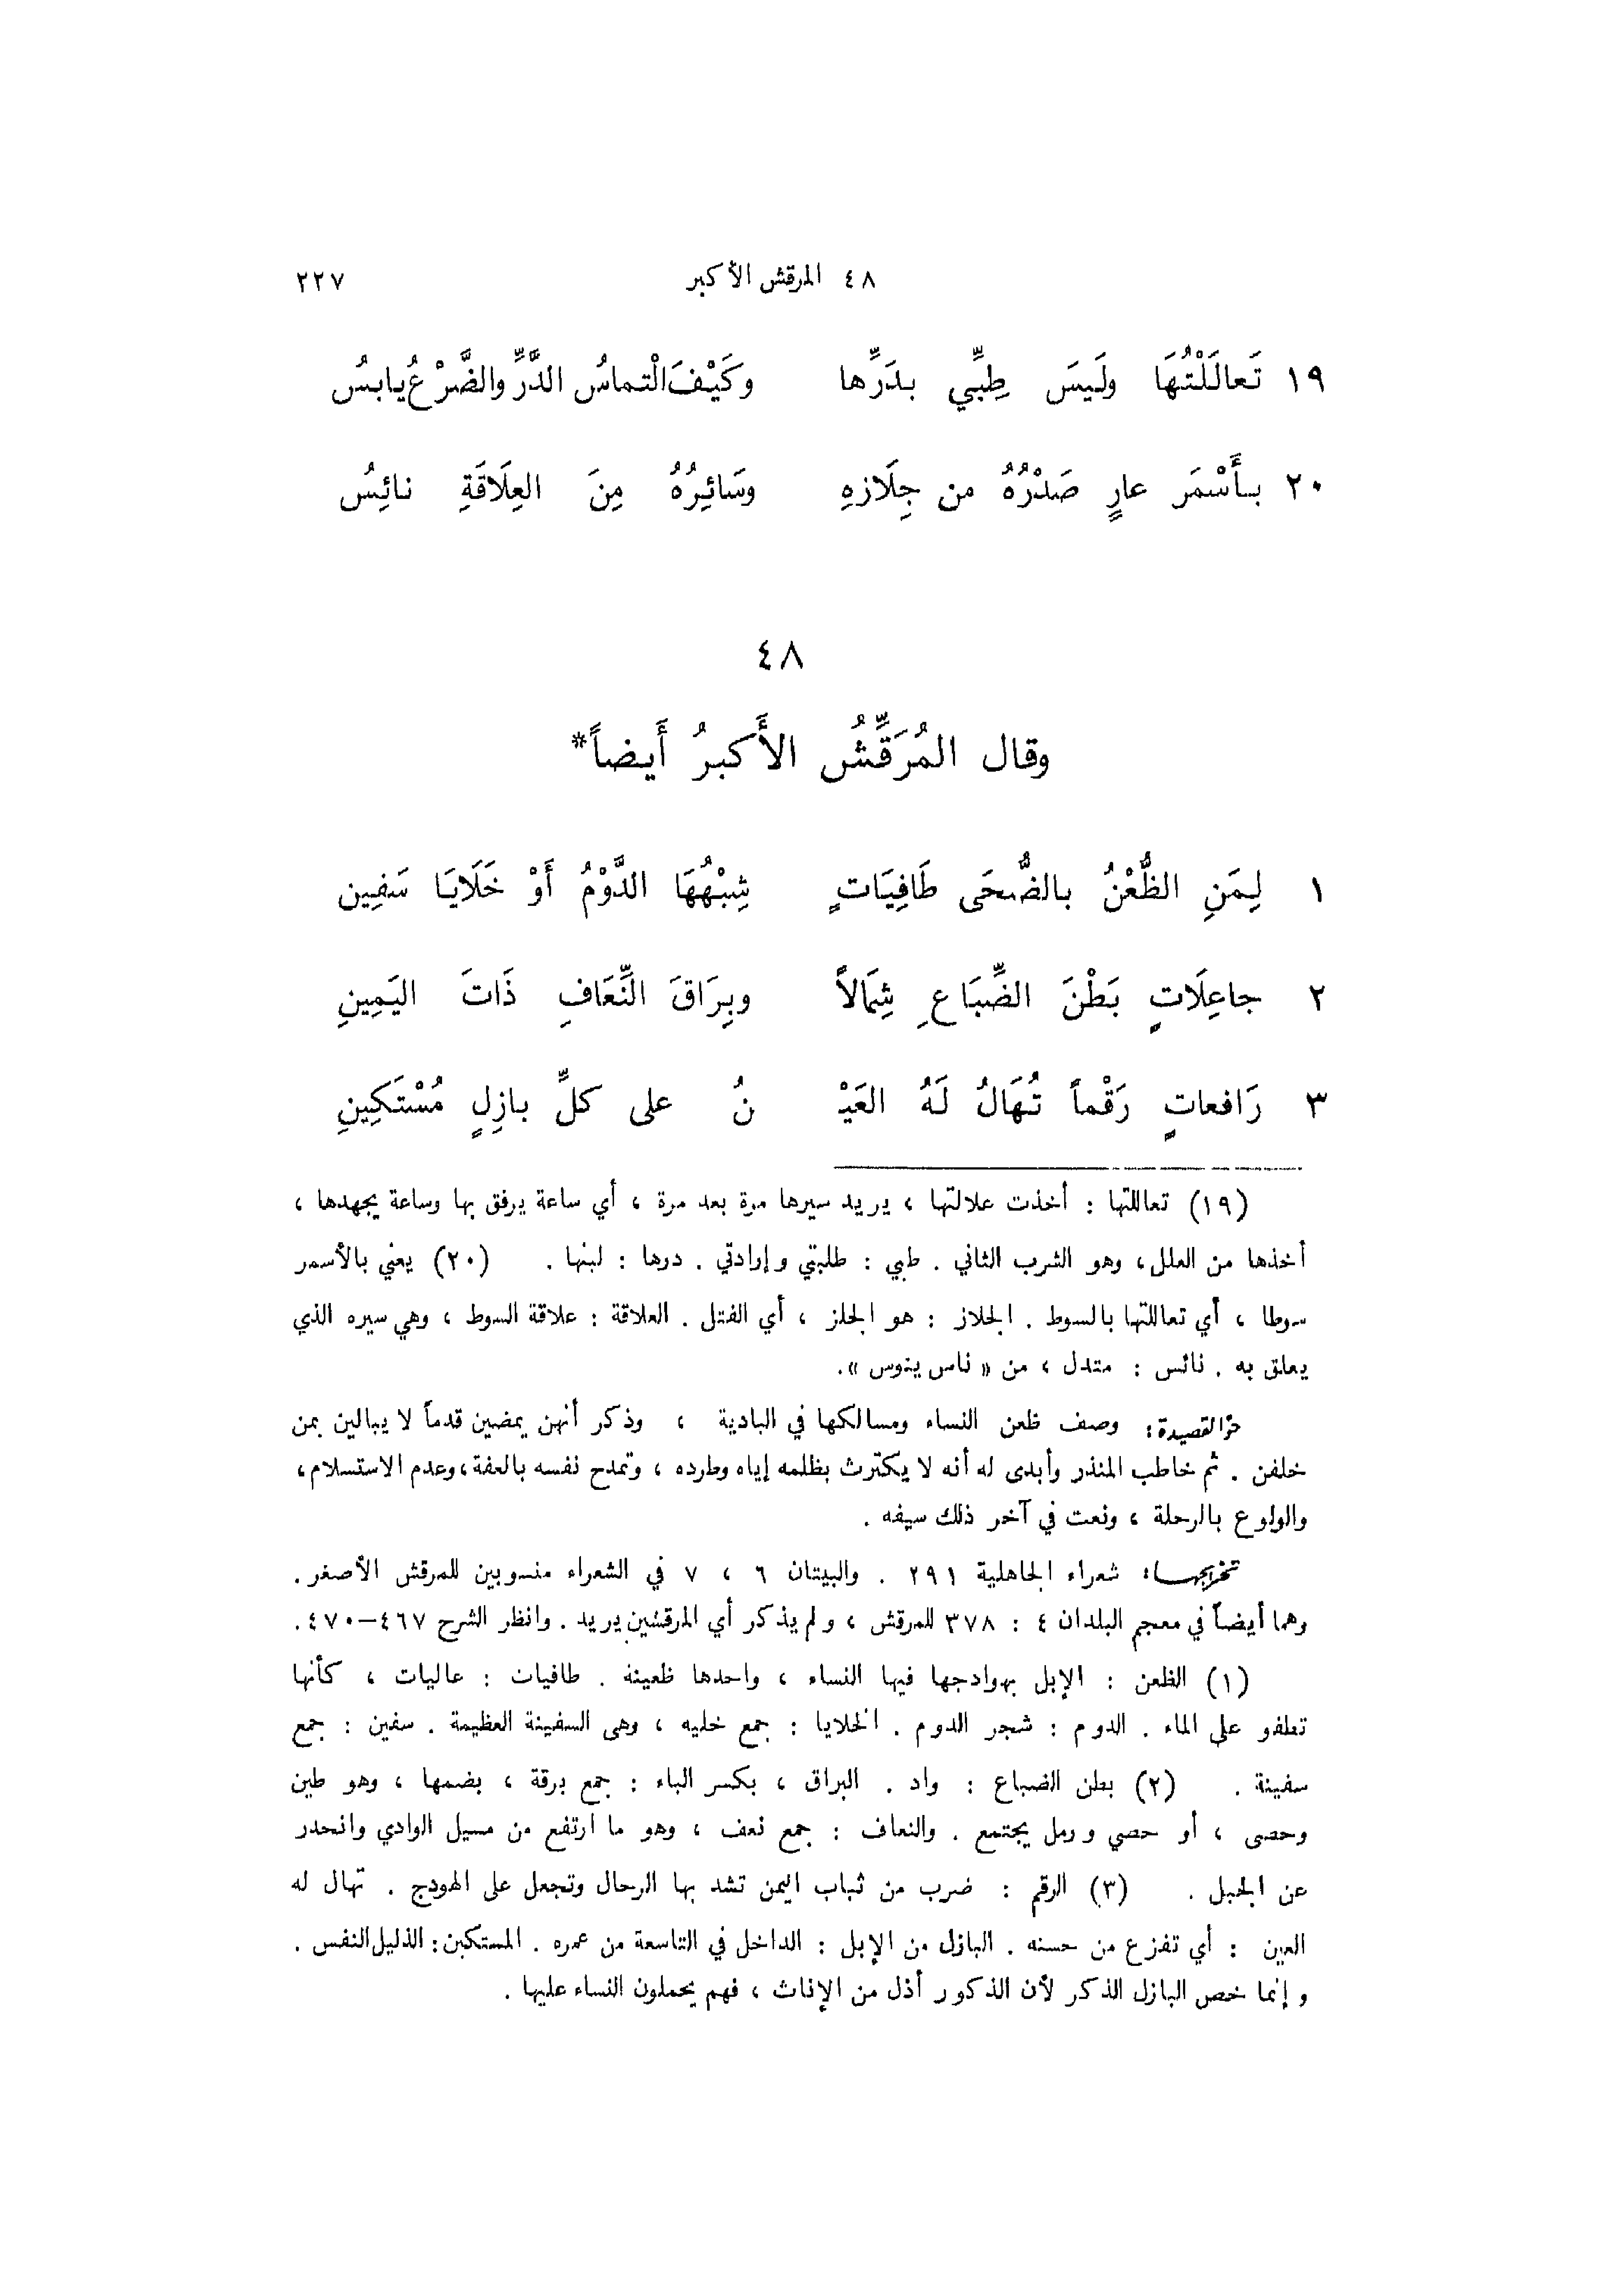 ٤٨ المرقش الأكبر ٢٢٧
١٩ تَعالَلْتُهَا ولَيسَ طِبِّي بدَرِّها وكَيْفَ الْتماسُ الدَّرِّ والضَّرْعُ يابسُ
٢٠ بأَسْمَر عارٍ صَدْرُهُ من جِلَازهِ وسَائِرُهُ مِنَ العِلَاقَةِ نائِسُ
٤٨
وقال المُرَقِّشُ الأَكبرُ أَيضاً*
١ لِمَنِ الظُّعْنُ بالضُّحَى طَافِيَاتٍ شِبْهُهَا الدَّوْمُ أَوْ خَلَايَا سَفِين
٢ جاعِلَاتٍ بَطْنَ الضِّبَاعِ شِمَالاً وبِرَاقَ النِّعَافِ ذَاتَ اليَمِينِ
٣ رَافعاتٍ رَقْماً تُهَالُ لَهُ العَيْـ ـنُ على كلِّ بازِلٍ مُسْتَكِينِ
(١٩) تعاللتها : أخذت علالتها ، يريد سيرها مرة بعد مرة ، أي ساعة يرفق بها وساعة يجهدها ،
أخذها من العلل، وهو الشرب الثاني . طبي : طلبتي وإرادتي . درها : لبنها . (٢٠) يعني بالأسمر
سوطا ، أي تعاللتها بالسوط . الجلاز : هو الجلز ، أي الفتل . العلاقة : علاقة السوط ، وهي سيره الذي
يعلق به . نائس : متدل ، من « ناس ينوس ».
جوّ القصيدة: وصف ظعن النساء ومسالكها في البادية ، وذكر أنهن يمضين قدماً لا يبالين بمن
خلفن . ثم خاطب المنذر وأبدى له أنه لا يكترث بظلمه إياه وطرده ، وتمدح نفسه بالعفة، وعدم الاستسلام،
والولوع بالرحلة ، ونعت في آخر ذلك سيفه .
تخريجها: شعراء الجاهلية ٢٩١ . والبيتان ٦ ، ٧ في الشعراء منسوبين للمرقش الأصغر .
وهما أيضاً في معجم البلدان ٤ : ٣٧٨ للمرقش ، ولم يذكر أي المرقشين يريد . وانظر الشرح ٤٦٧–٤٧٠ .
(١) الظعن : الإبل بهوادجها فيها النساء ، واحدها ظعينة . طافيات : عاليات ، كأنها
تطفو على الماء . الدوم : شجر الدوم . الخلايا : جمع خليه ، وهى السفينة العظيمة . سفين : جمع
سفينة . (٢) بطن الضباع : واد . البراق ، بكسر الباء : جمع برقة ، بضمها ، وهو طين
وحصى ، أو حصي ورمل يجتمع . والنعاف : جمع نعف ، وهو ما ارتفع من مسيل الوادي وانحدر
عن الجبل . (٣) الرقم : ضرب من ثباب اليمن تشد بها الرحال وتجعل على الهودج . تهال له
العين : أي تفزع من حسنه . البازل من الإبل : الداخل في التاسعة من عمره . المستكين : الذليل النفس .
وإنما خص البازل الذكر لأن الذكور أذل من الإناث ، فهم يحملون النساء عليها .